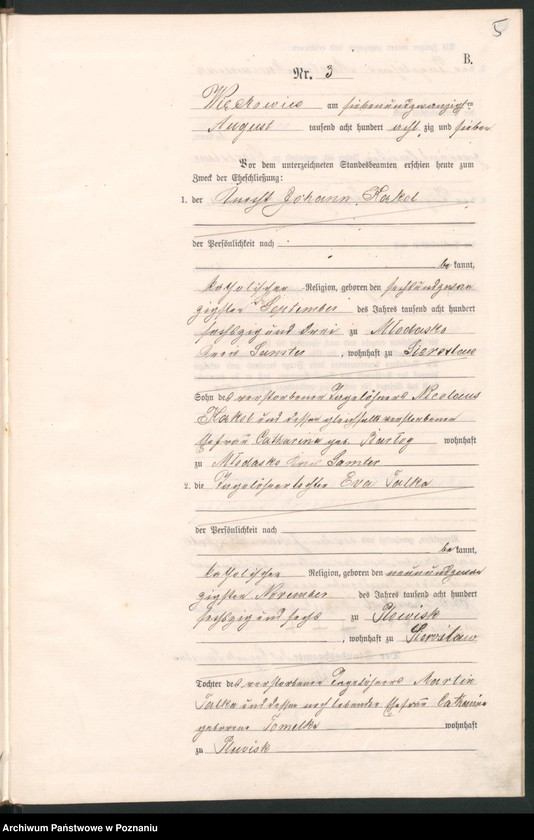 5
B.
Nr. 3
Więckowice am siebenundzwanzigsten
August tausend acht hundert acht zig und sieben
Vor dem unterzeichneten Standesbeamten erschien heute zum
Zweck der Eheschließung:
1. der Knecht Johann Kakol
der Persönlichkeit nach
be kannt,
katholischer Religion, geboren den sechsundzwan
zigsten September des Jahres tausend acht hundert
sechszig und drei zu Młodasko
Kreis Samter, wohnhaft zu Sieroslaw
Sohn des verstorbenen Tagelöhners Nicolaus
Kakol und dessen gleichfalls verstorbenen
Ehefrau Catharina geb. wohnhaft
zu Młodasko Kreis Samter
2. die Tagelöhnertochter Eva Talka
der Persönlichkeit nach
be kannt,
katholischer Religion, geboren den neunundzwan
zigsten November des Jahres tausend acht hundert
sechszig und sechs zu Plewisk
, wohnhaft zu Sieroslaw
Tochter des verstorbenen Tagelöhners Martin
Talka und dessen noch lebenden Ehefrau Catharina
geborene Tomelka wohnhaft
zu Plewisk
Archiwum Państwowe w Poznaniu